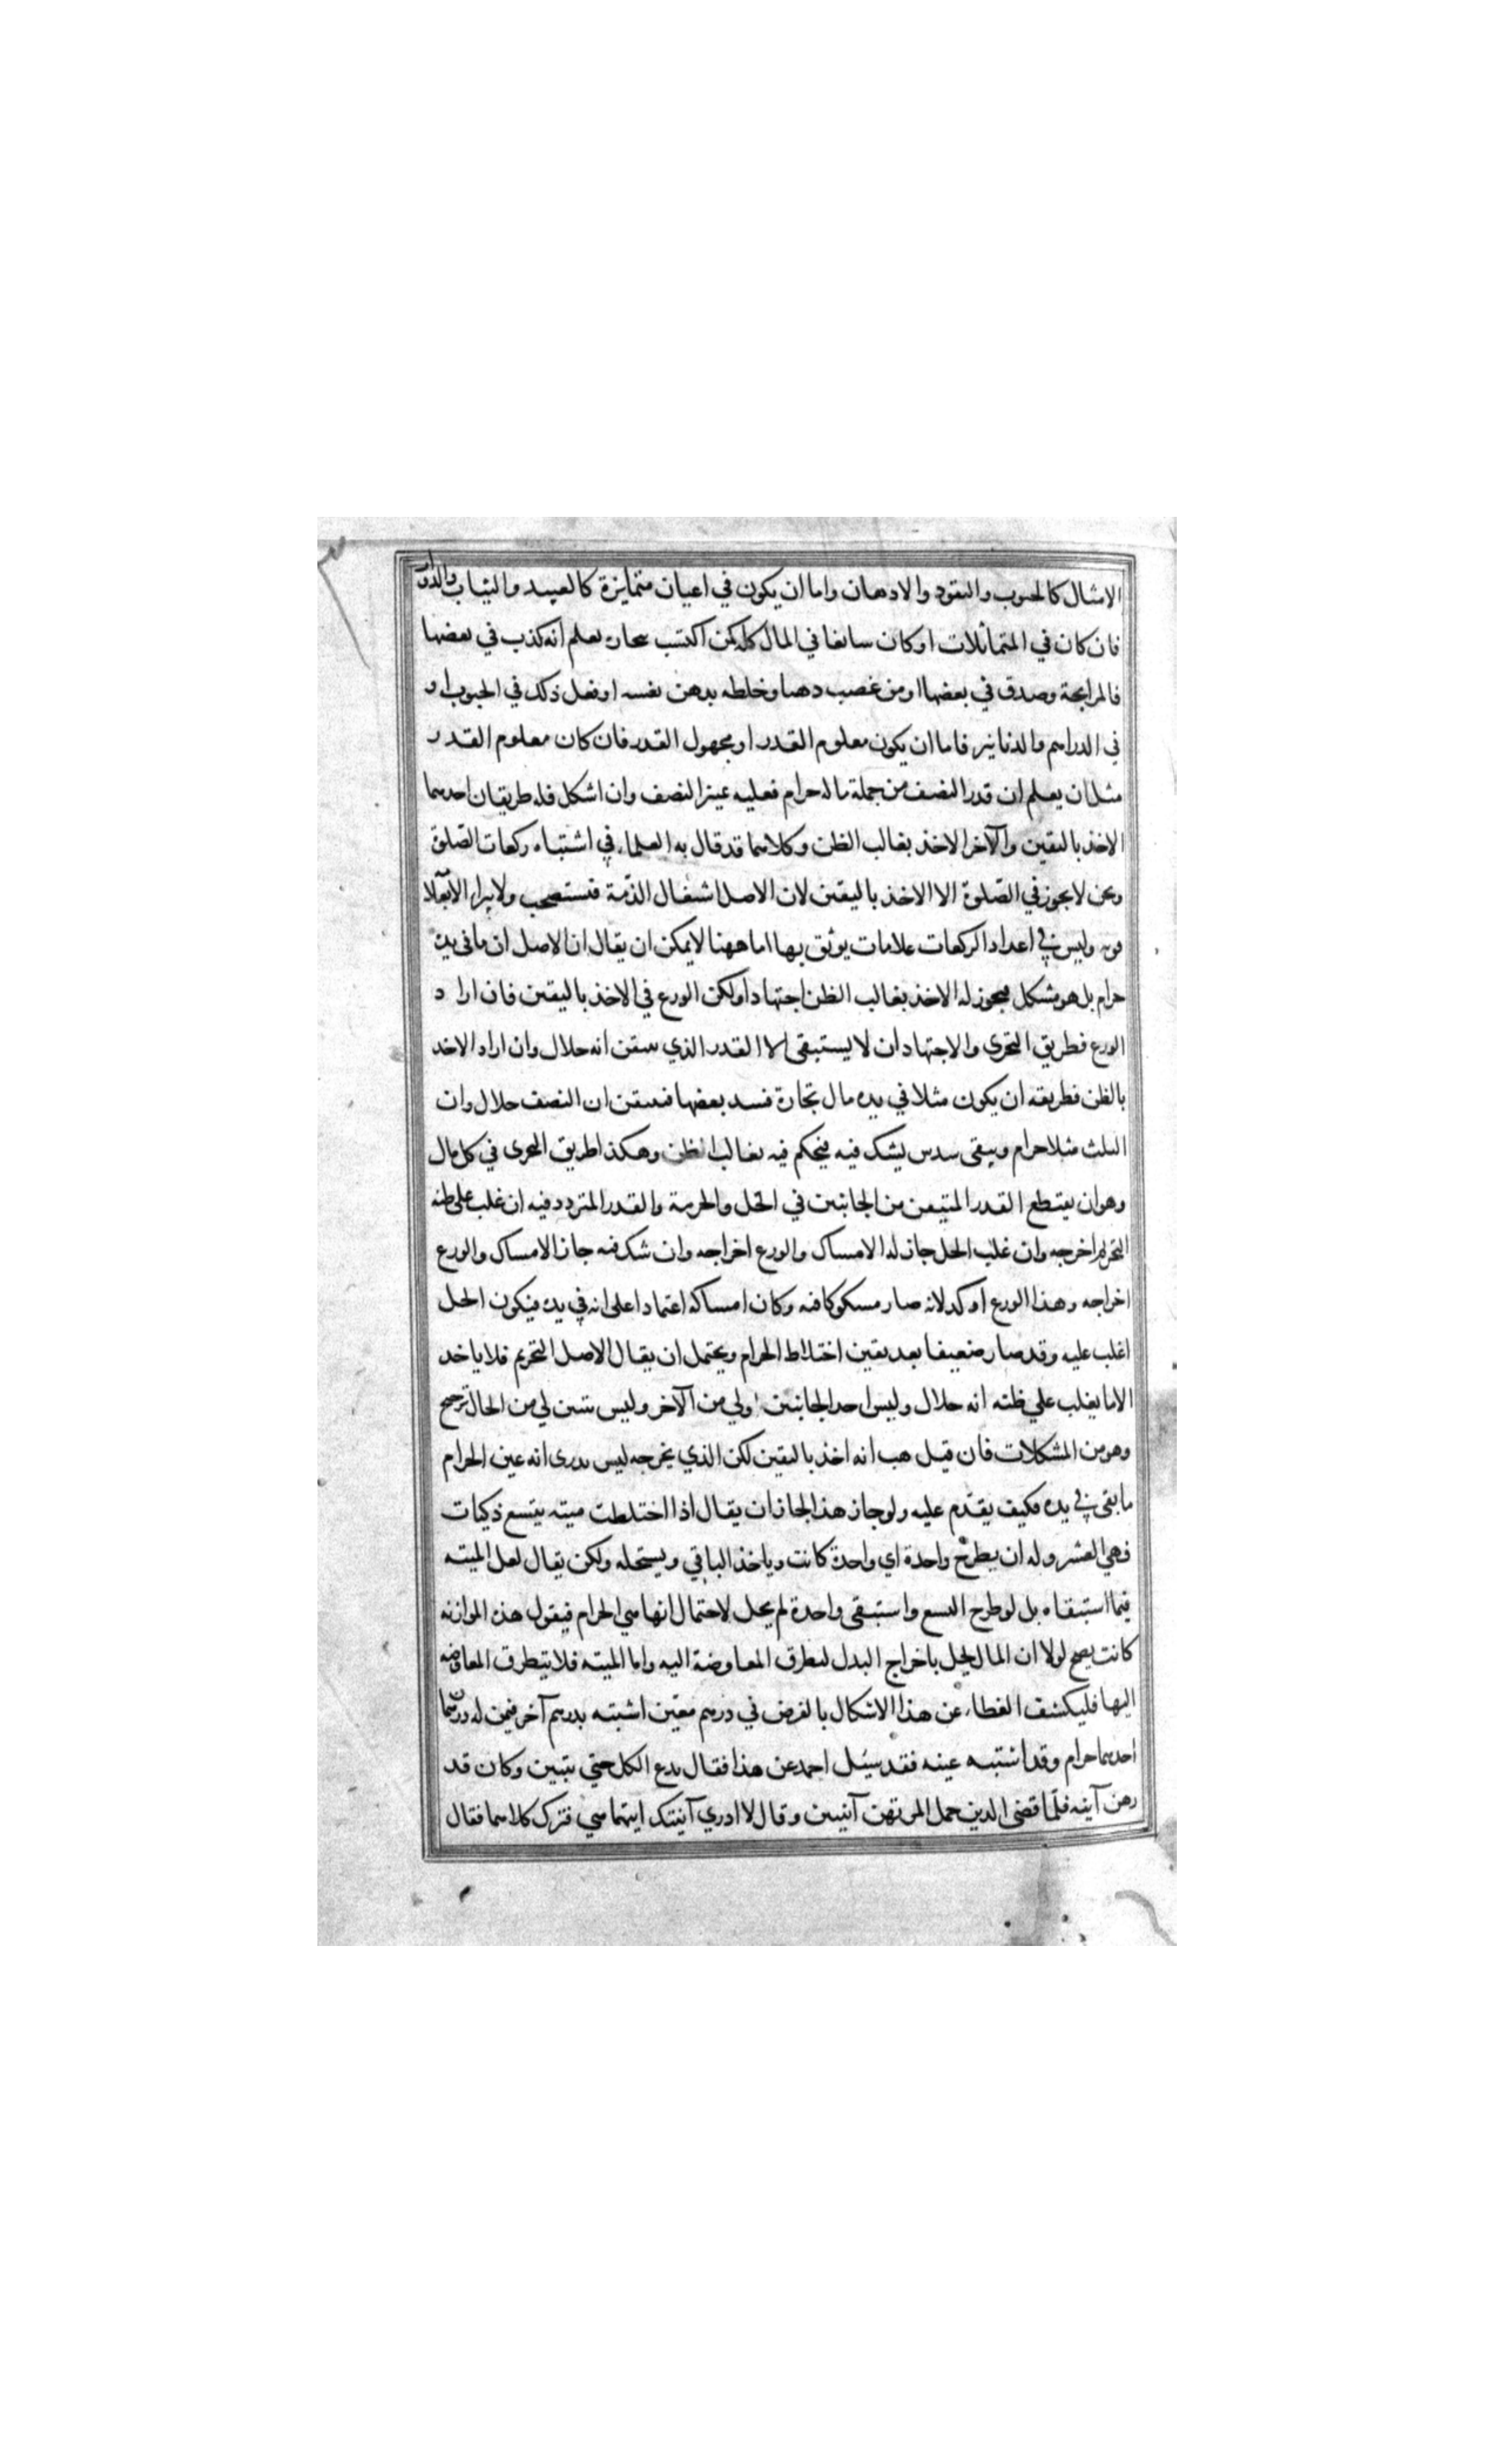 الامثال كالحبوب والنقود والادهان واما ان يكون في اعيان متمايزة كالعبيد والثياب والدور
فان كان في المتماثلات او كان سايغا في المال كله كمن اكتسب بتجارة يعلم انه كذب في بعضها
فالمرابحة وصدق في بعضها او من غصب دهنا وخلطه بدهن نفسه او فعل ذلك في الحبوب او
في الدراهم والدنانير فاما ان يكون معلوم القدر او مجهول القدر فان كان معلوم القدر
مثل ان يعلم ان قدر النصف من جملة ماله حرام فعليه عيز النصف وان اشكل فله طريقان احدهما
الاخذ باليقين والآخر الاخذ بغالب الظن وكلاهما قد قال به العلماء في اشتباه ركعات الصّلوة
ونحن لا يجوز في الصّلوة الا الاخذ باليقين لان الاصل اشتغال الذّمة فتستصحب ولا يبرا
وليس في اعداد الركعات علامات يوثق بها اما ههنا لا يمكن ان يقال ان الاصل ان ما في يده
حرام بل هو مشكل فيجوز له الاخذ بغالب الظن اجتهادا ولكن الورع في الاخذ باليقين فان اراد
الورع فطريق التحرى والاجتهاد ان لا يستبقى الا القدر الذي يتيقن انه حلال وان اراد الاخذ
بالظن فطريقه ان يكون مثلا في يده مال تجارة فسد بعضها فيتيقن ان النصف حلال وان
الثلث مثلا حرام ويبقى سدس يشك فيه فيحكم فيه بغالب الظن وهكذا طريق التحرى في كل مال
وهو ان يقتطع القدر المتيقن من الجانبين في الحل والحرمة والقدر المتردد فيه ان غلب على ظنه
التحريم اخرجه وان غلب الحل جاز له الامساك والورع اخراجه وان شك فيه جاز الامساك والورع
اخراجه وهذا الورع اوكد لانه صار مشكوكا فيه وكان امساكه اعتمادا على انه في يده فيكون الحل
اغلب عليه وقد صار ضعيفا بعد يقين اختلاط الحرام ويحتمل ان يقال الاصل التحريم فلا ياخذ
الا ما يغلب علي ظنه انه حلال وليس احد الجانبين اولي من الآخر وليس يتبين لي من الحال ترجيح
وهو من المشكلات فان قيل هب انه اخذ باليقين لكن الذي يخرجه ليس يدرى انه عين الحرام
ما بقى في يده فكيف يقدّم عليه ولو جاز هذا لجاز ان يقال اذا اختلطت ميته بتسع ذكيات
فهي العشر وله ان يطرح واحدة اي واحدة كانت وياخذ الباقي ويستحله ولكن يقال لعل الميته
فيما استبقاه بل لو طرح التسع واستبقى واحدة لم يحل لاحتمال انها هي الحرام فيقول هذه الموازنه
كانت يصح لولا ان المال يحل باخراج البدل لتطرق المعاوضة اليه واما الميته فلا يتطرق المعاوضه
اليها فليكشف الغطاء عن هذا الاشكال بالفرض في درهم معين اشتبه بدرهم آخر فيمن له درهمان
احدهما حرام وقد اشتبه عينه فقد سئل احمد عن هذا فقال يدع الكل حتي يتبين وكان قد
رهن آنيه فلمّا قضى الدين حمل المرتهن آنيتين وقال لا ادري آنيتك ايتهما هي فترك كلاهما فقال